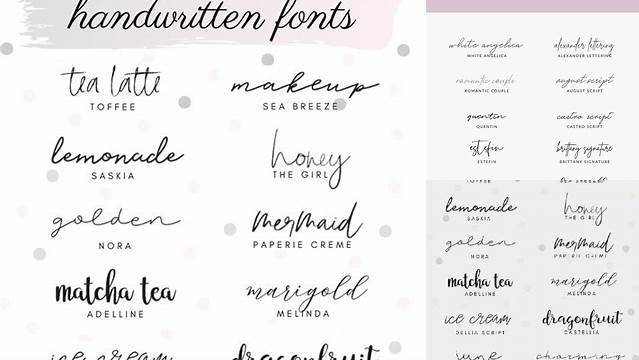 handwritten fonts
tea latte
TOFFEE
makeup
SEA BREEZE
lemonade
SASKIA
honey
THE GIRL
golden
NORA
mermaid
PAPERIE CREME
matcha tea
ADELLINE
marigold
MELINDA
ice cream
dragonfruit
white angelica
WHITE ANGELICA
alexander lettering
ALEXANDER LETTERING
romantic couple
ROMANTIC COUPLE
august script
AUGUST SCRIPT
quentin
QUENTIN
castro script
CASTRO SCRIPT
estefin
ESTEFIN
brittany signature
BRITTANY SIGNATURE
lemonade
SASKIA
honey
THE GIRL
golden
NORA
mermaid
PAPERIE CREME
matcha tea
ADELLINE
marigold
MELINDA
ice cream
DELLIA SCRIPT
dragonfruit
CASTELLIA
june
charming